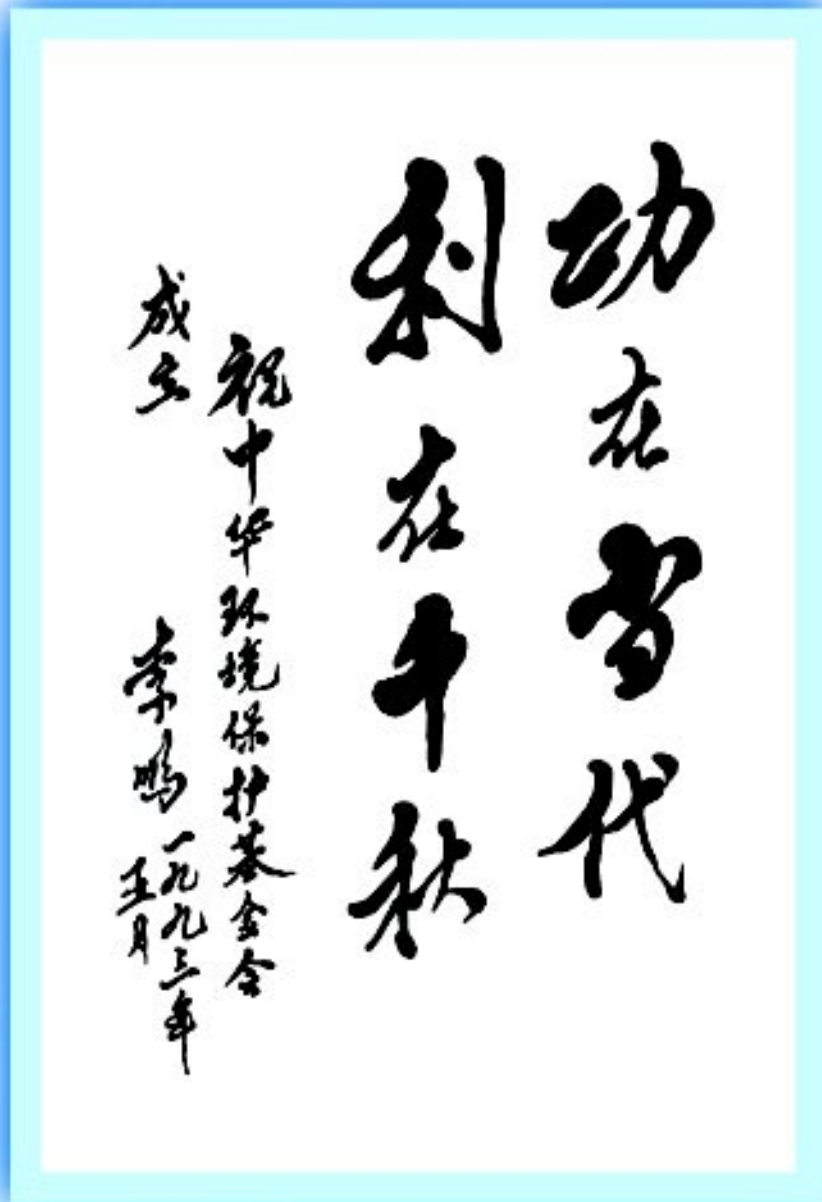 功在当代
利在千秋
祝中华环境保护基金会
成立
李鹏 一九九三年
五月